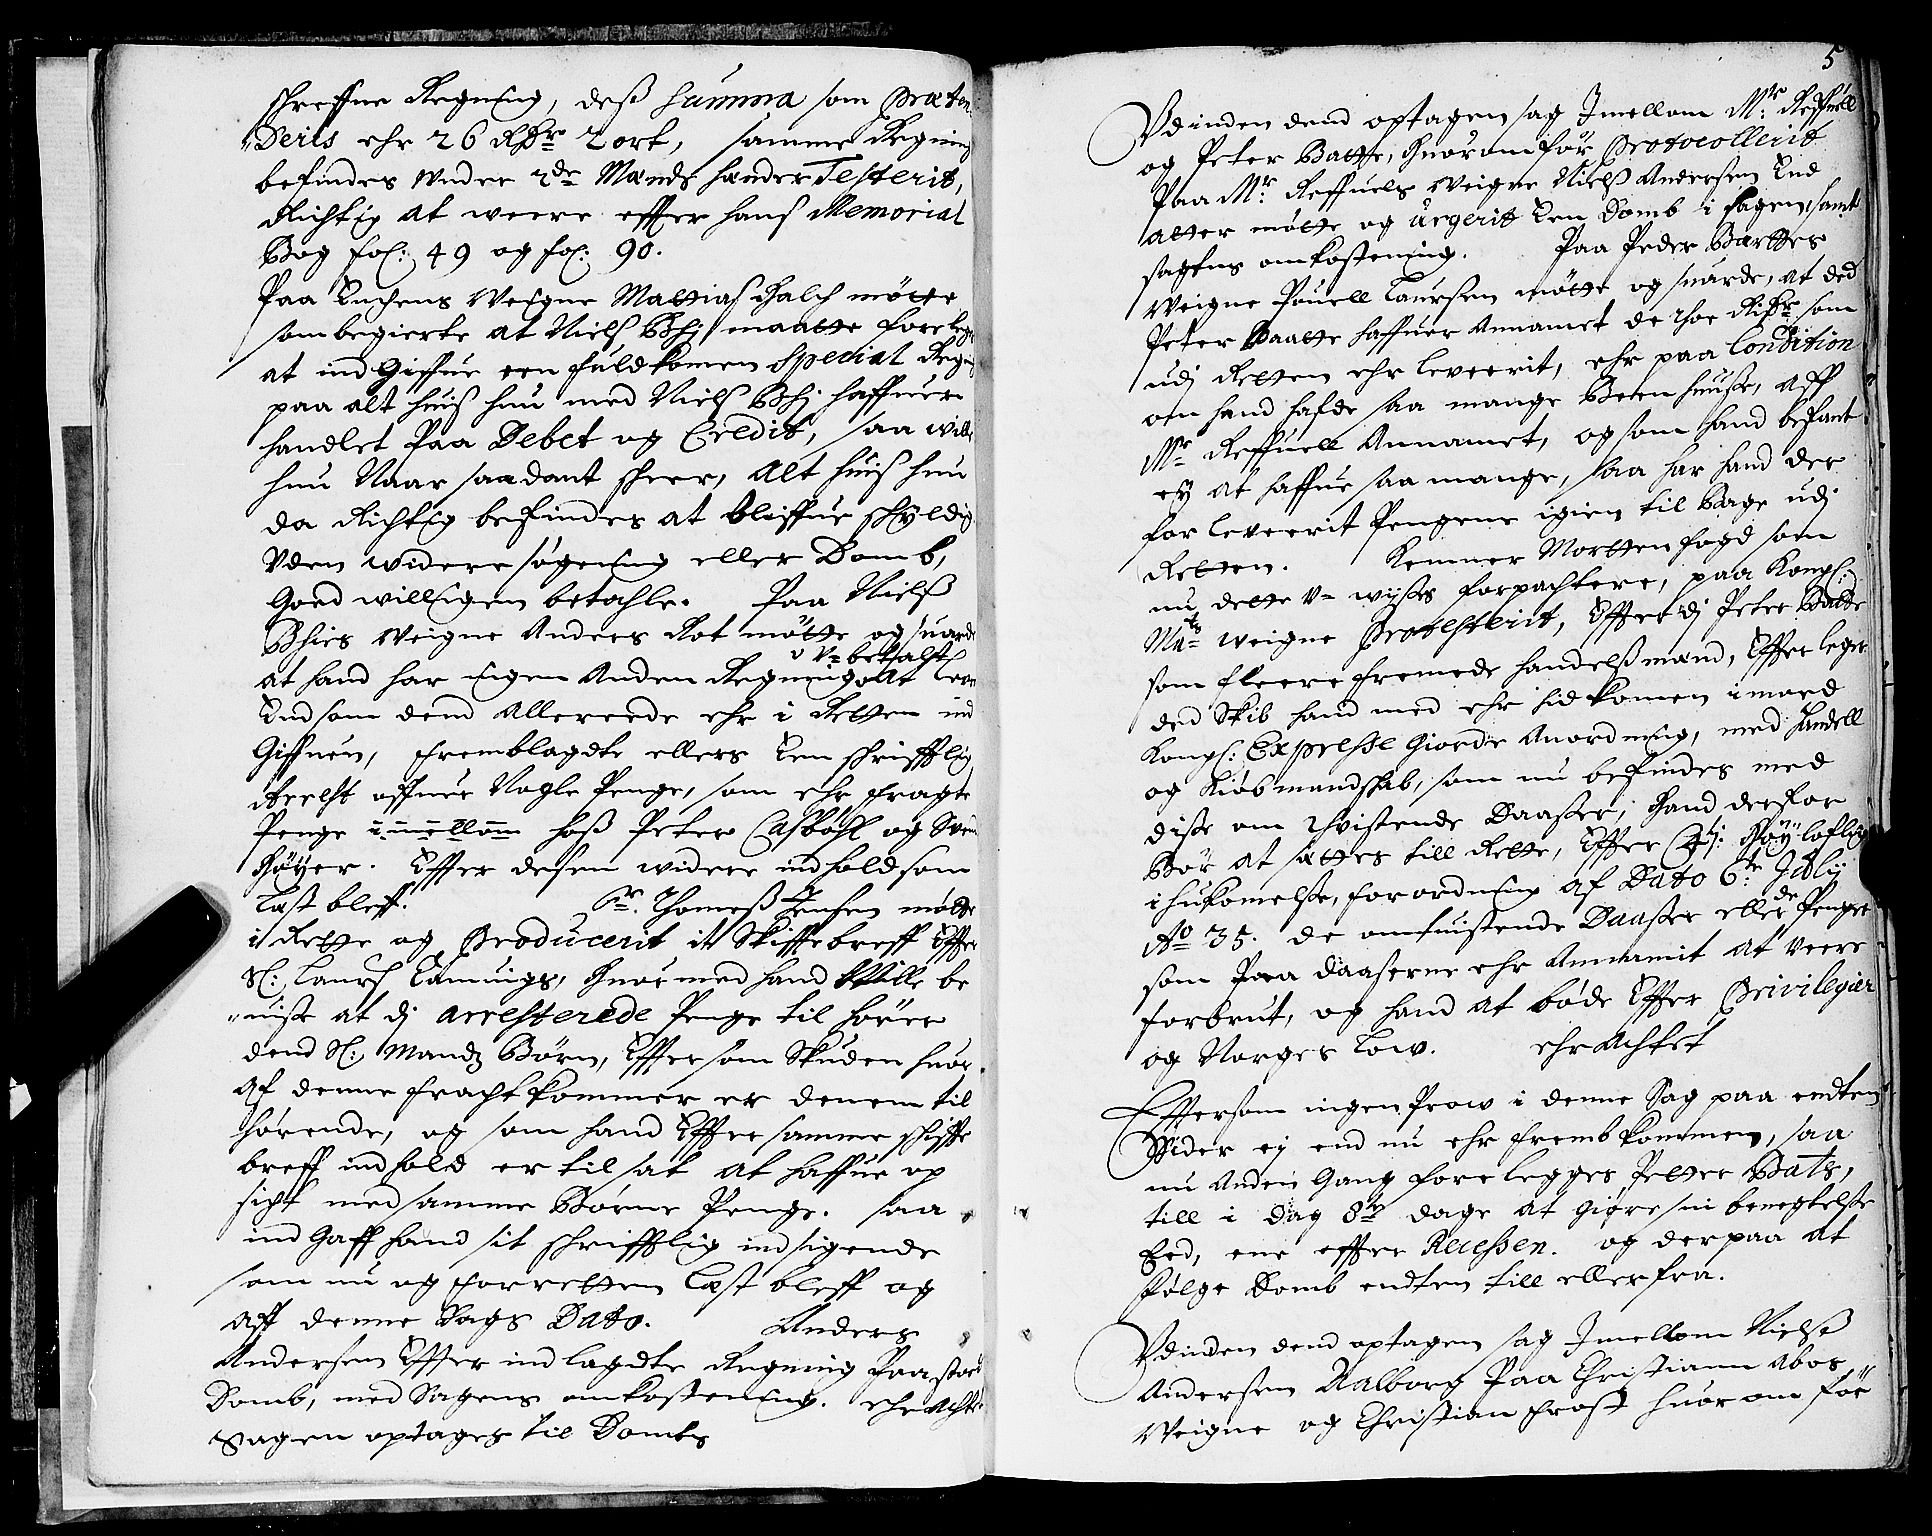 schreffne Regning, deß Summa som Præten
"deris ehr 26 Rdr 2 ort, samme Regning
befindes under 2de Mænds hænder Testerit,
Richtig at were effter hans Memorial
Bog fol: 49 og fol: 90.
Paa Enchens Weigne Mattias Falch møtte
som begierte at Niels Bhj maatte forelegg
at ind Giffue een fuldkomen Special Regn
paa alt huis hun med Niels Bhj haffuer
handlet Paa Debet og Credit, saa will
hun Naar saadant scheer, Alt huis hun
da Richtig befindes at bliffue schyldig
Uden widere søgning eller Domb,
Goed willigen betahle. Paa Nielß
Bhies Weigne Anders Rot møtte og suarde
u-betalt
at hand har ingen Anden Regning at leve
End som dend Allereede ehr i Retten ind
Giffuen, fremblagdte ellers En schrifftlig
Arrest offuer Nogle Penge, som ehr fragte
Penge imellom hoß Peter Casbohl og Svend
Høyer. Effter desen widere indhold som
last bleff. Sr. Thomeß Jensen møtte
i Rette og Producerit it Skifftebreff Effter
Sl: Laurs Lanuigs, huor med hand Wille be
"uise at dj arresterede Penge til hører
dend Sl: Mandz Børn, Effter som Skuden huor
af denne fracht kommer er dennem til
hørende, og som hand Effter samme schiffte
breff indhold er tilsat at haffue op
sigt med samme Børne Penge. saa
ind Gaff hand sit schrifftlig indsigende
som nu og for retten last bleff og
aff denne Dags Dato. Anders
Andersen Effter indlagdte Regning Paastoed
Domb, med Sagens omkostening. ehr achtet
Sagen optages til Domb
5
Udinden dend optagen sag Imellom Mr. Reffuell
og Peter Batte, huorom før Protocollerit
Paa Mr. Reffuels Weigne Nielß Andersen End
atter møtte og urgerit Een Domb i sagen, samt
sagens omkostening. Paa Peder Battes
Weigne Pouell Laursen møtte og suarde, at ded
Peter Baatte haffuer Annamet de thoe Rixdr som
udj Retten ehr leveerit, ehr paa Condition
om hand hafde saa mange Been huuße, aff
Mr Reffuell Annamet, og som hand befant
ey at haffue saa mange, saa har hand der
for leveerit Pengene igien til bage udj
Retten. Kemner Mortten fogd som
nu dette wißes forpachtere, paa Kongl:
Mats weigne Protesterit, Effterdj Peter Batte
som fleere fremede handelßmænd, Effter leger
ded Skib hand med ehr hidkomen imoed
Kongl: Expresse Giorde Anordning, med handell
og Kiøbmandschab, som nu befindes med
disse om thuistende Daasser, hand derfor
Bør at settes till Rette, Effter C. 4ti: Høyloflig
ihukomelse, forordning af Dato 6te July
Ao 35. de omtuistende Daasser eller de Penge
som Paa daasserne ehr Annamit at veere
forbrut, og hand at bøde Effter Privilegier
og Norges Low. ehr Achtet
Efftersom ingen Prow i denne Sag paa endten
Sider ey end nu ehr frembkommen, saa
nu Anden Gang forelegges Petter Bats,
till i dag 8te dage at Giøre sin benegtelse
Eed, ene effter Recessen. og derpaa at
følge Domb endten till eller fra.
Udinden dend optagen sag Imellom Nielß
Andersen Aalborg Paa Christiann Abos
Weigne og Christian frost huorom før